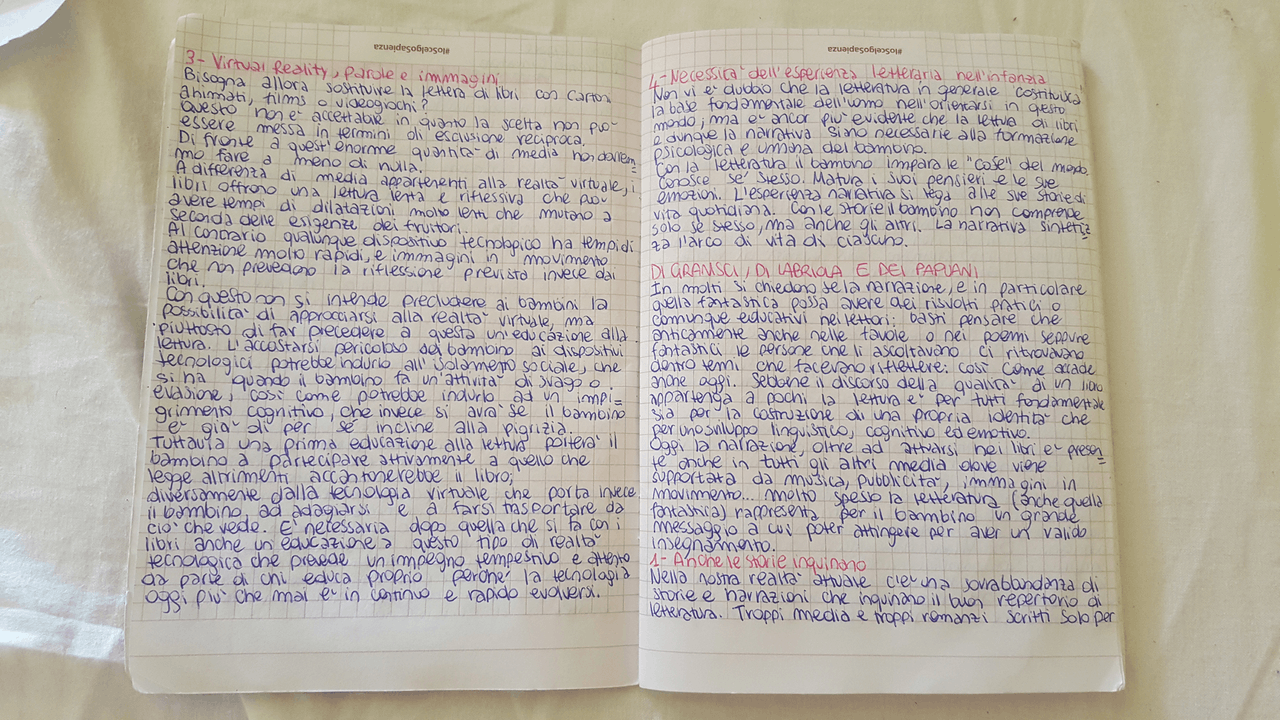 #IoScelgoSapienza
3- Virtual Reality, parole e immagini
Bisogna allora sostituire la lettera di libri con carton
animati, films o videogiochi?
Questo non e' accettabile in quanto la scelta non puo'
essere messa in termini di esclusione reciproca.
Di fronte a quest'enorme quantita' di media non dovrem
mo fare a meno di nulla.
A differenza di media appartenenti alla realta' virtuale, i
libri offrono una lettura lenta e riflessiva che puo'
avere tempi di dilatazioni molto lenti che mutano a
seconda delle esigenze dei fruitori.
Al contrario qualunque dispositivo tecnologico ha tempi di
attenzione molto rapidi, e immagini in movimento
che non prevedono la riflessione prevista invece dai
libri.
Con questo non si intende precludere ai bambini la
possibilita' di approcciarsi alla realta' virtuale, ma
piuttosto di far precedere a questa un'educazione alla
lettura. L'accostarsi pericoloso del bambino ai dispositivi
tecnologici potrebbe indurlo all'isolamento sociale, che
si ha quando il bambino fa un'attivita' di svago o
evasione, cosi' come potrebbe indurlo ad un impi=
grimento cognitivo, che invece si avra' se il bambino
e' gia' di per se' incline alla pigrizia.
Tuttavia una prima educazione alla lettura portera' il
bambino a partecipare attivamente a quello che
legge altrimenti accantonerebbe il libro;
diversamente dalla tecnologia virtuale che porta invece
il bambino ad adagiarsi e a farsi trasportare da
cio' che vede. E' necessaria dopo quella che si fa con i
libri anche un'educazione a questo tipo di realta'
tecnologica che prevede un impegno tempestivo e attento
da parte di chi educa proprio perche' la tecnologia
oggi piu' che mai e' in continuo e rapido evolversi.
#IoScelgoSapienza
4- Necessita' dell'esperienza letteraria nell'infanzia
Non vi e' dubbio che la letteratura in generale costituisca
la base fondamentale dell'uomo nell'orientarsi in questo
mondo, ma e' ancor piu' evidente che la lettura di libri
e dunque la narrativa siano necessarie alla formazione
psicologica e umana del bambino.
Con la letteratura il bambino impara le "cose" del mondo,
conosce se' stesso. Matura i suoi pensieri e le sue
emozioni. L'esperienza narrativa si lega alle sue storie di
vita quotidiana. Con le storie il bambino non comprende
solo se stesso, ma anche gli altri. La narrativa sintetiz
za l'arco di vita di ciascuno.
DI GRAMSCI, DI LABRIOLA E DEI PAPUANI
In molti si chiedono se la narrazione, e in particolare
quella fantastica possa avere dei risvolti pratici o
comunque educativi nei lettori: basti pensare che
anticamente anche nelle favole o nei poemi seppure
fantastici le persone che li ascoltavano ci ritrovavano
dentro temi che facevano riflettere: cosi' come accade
anche oggi. Sebbene il discorso della qualita' di un libro
appartenga a pochi la lettura e' per tutti fondamentale
sia per la costruzione di una propria identita' che
per uno sviluppo linguistico, cognitivo ed emotivo.
Oggi la narrazione, oltre ad attuarsi nei libri e' presen
te anche in tutti gli altri media dove viene
supportata da musica, pubblicita', immagini in
movimento... molto spesso la letteratura (anche quella
fantastica) rappresenta per il bambino un grande
messaggio a cui poter attingere per aver un valido
insegnamento.
1- Anche le storie inquinano
Nella nostra realta' attuale c'e' una sovrabbondanza di
storie e narrazioni che inquinano il buon repertorio di
letteratura. Troppi media e troppi romanzi scritti solo per